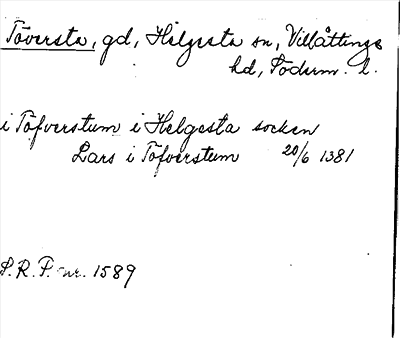 Töversta, gd, Helgesta sn, Villåttinge
hd, Söderm. l.
i Töfverstum i Helgesta socken
Lars i Töfverstum 20/6 1381
S.R.P. nr. 1589